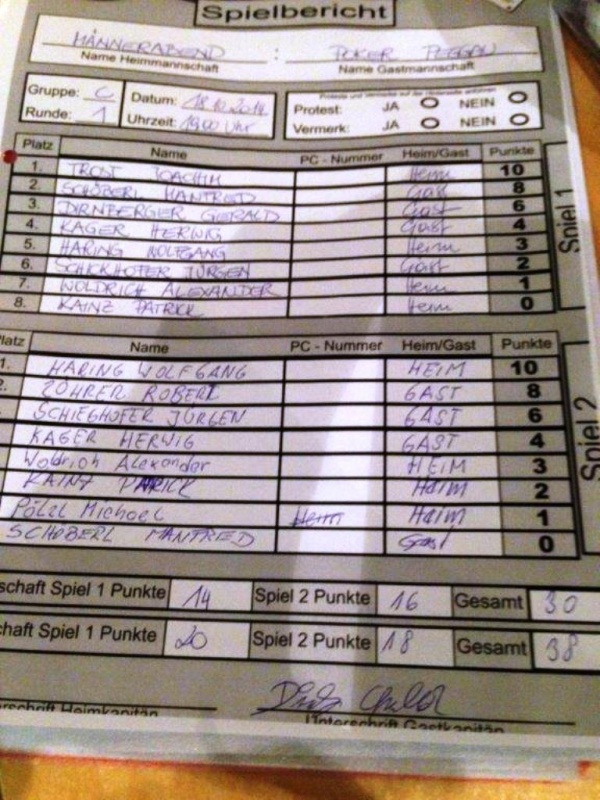 Spielbericht
MÄNNERABEND : POKER PEGGAU
Name Heimmannschaft Name Gastmannschaft
Gruppe: C Datum: 18.10.2014 Protest: JA NEIN
Runde: 1 Uhrzeit: 19:00 Uhr Vermerk: JA NEIN
Platz Name PC - Nummer Heim/Gast Punkte
1. TROST JOACHIM Heim 10
2. SCHÖBERL MANFRED Gast 8
3. DIRNBERGER GERALD Gast 6
4. KAGER HERWIG Gast 4
5. HARING WOLFGANG Heim 3
6. SCHICKHOFER JÜRGEN Gast 2
7. WOLDRICH ALEXANDER Heim 1
8. KAINZ PATRICK Heim 0
Spiel 1
latz Name PC - Nummer Heim/Gast Punkte
1. HARING WOLFGANG HEIM 10
2. ZÖHRER ROBERT GAST 8
SCHIEGHOFER JÜRGEN GAST 6
KAGER HERWIG GAST 4
Woldrich Alexander HEIM 3
KAINZ PATRICK Heim 2
Pölzl Michael Heim Heim 1
SCHÖBERL MANFRED Gast 0
Spiel 2
schaft Spiel 1 Punkte 14 Spiel 2 Punkte 16 Gesamt 30
chaft Spiel 1 Punkte 20 Spiel 2 Punkte 18 Gesamt 38
erschrift Heimkapitän Unterschrift Gastkapitän